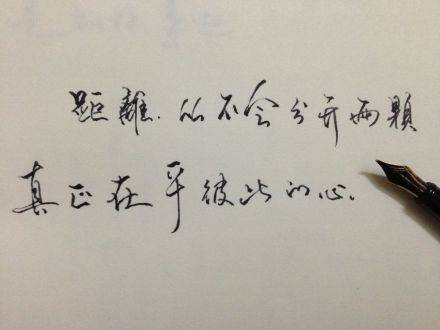 距離.从不会分开兩顆
真正在乎彼此的心.